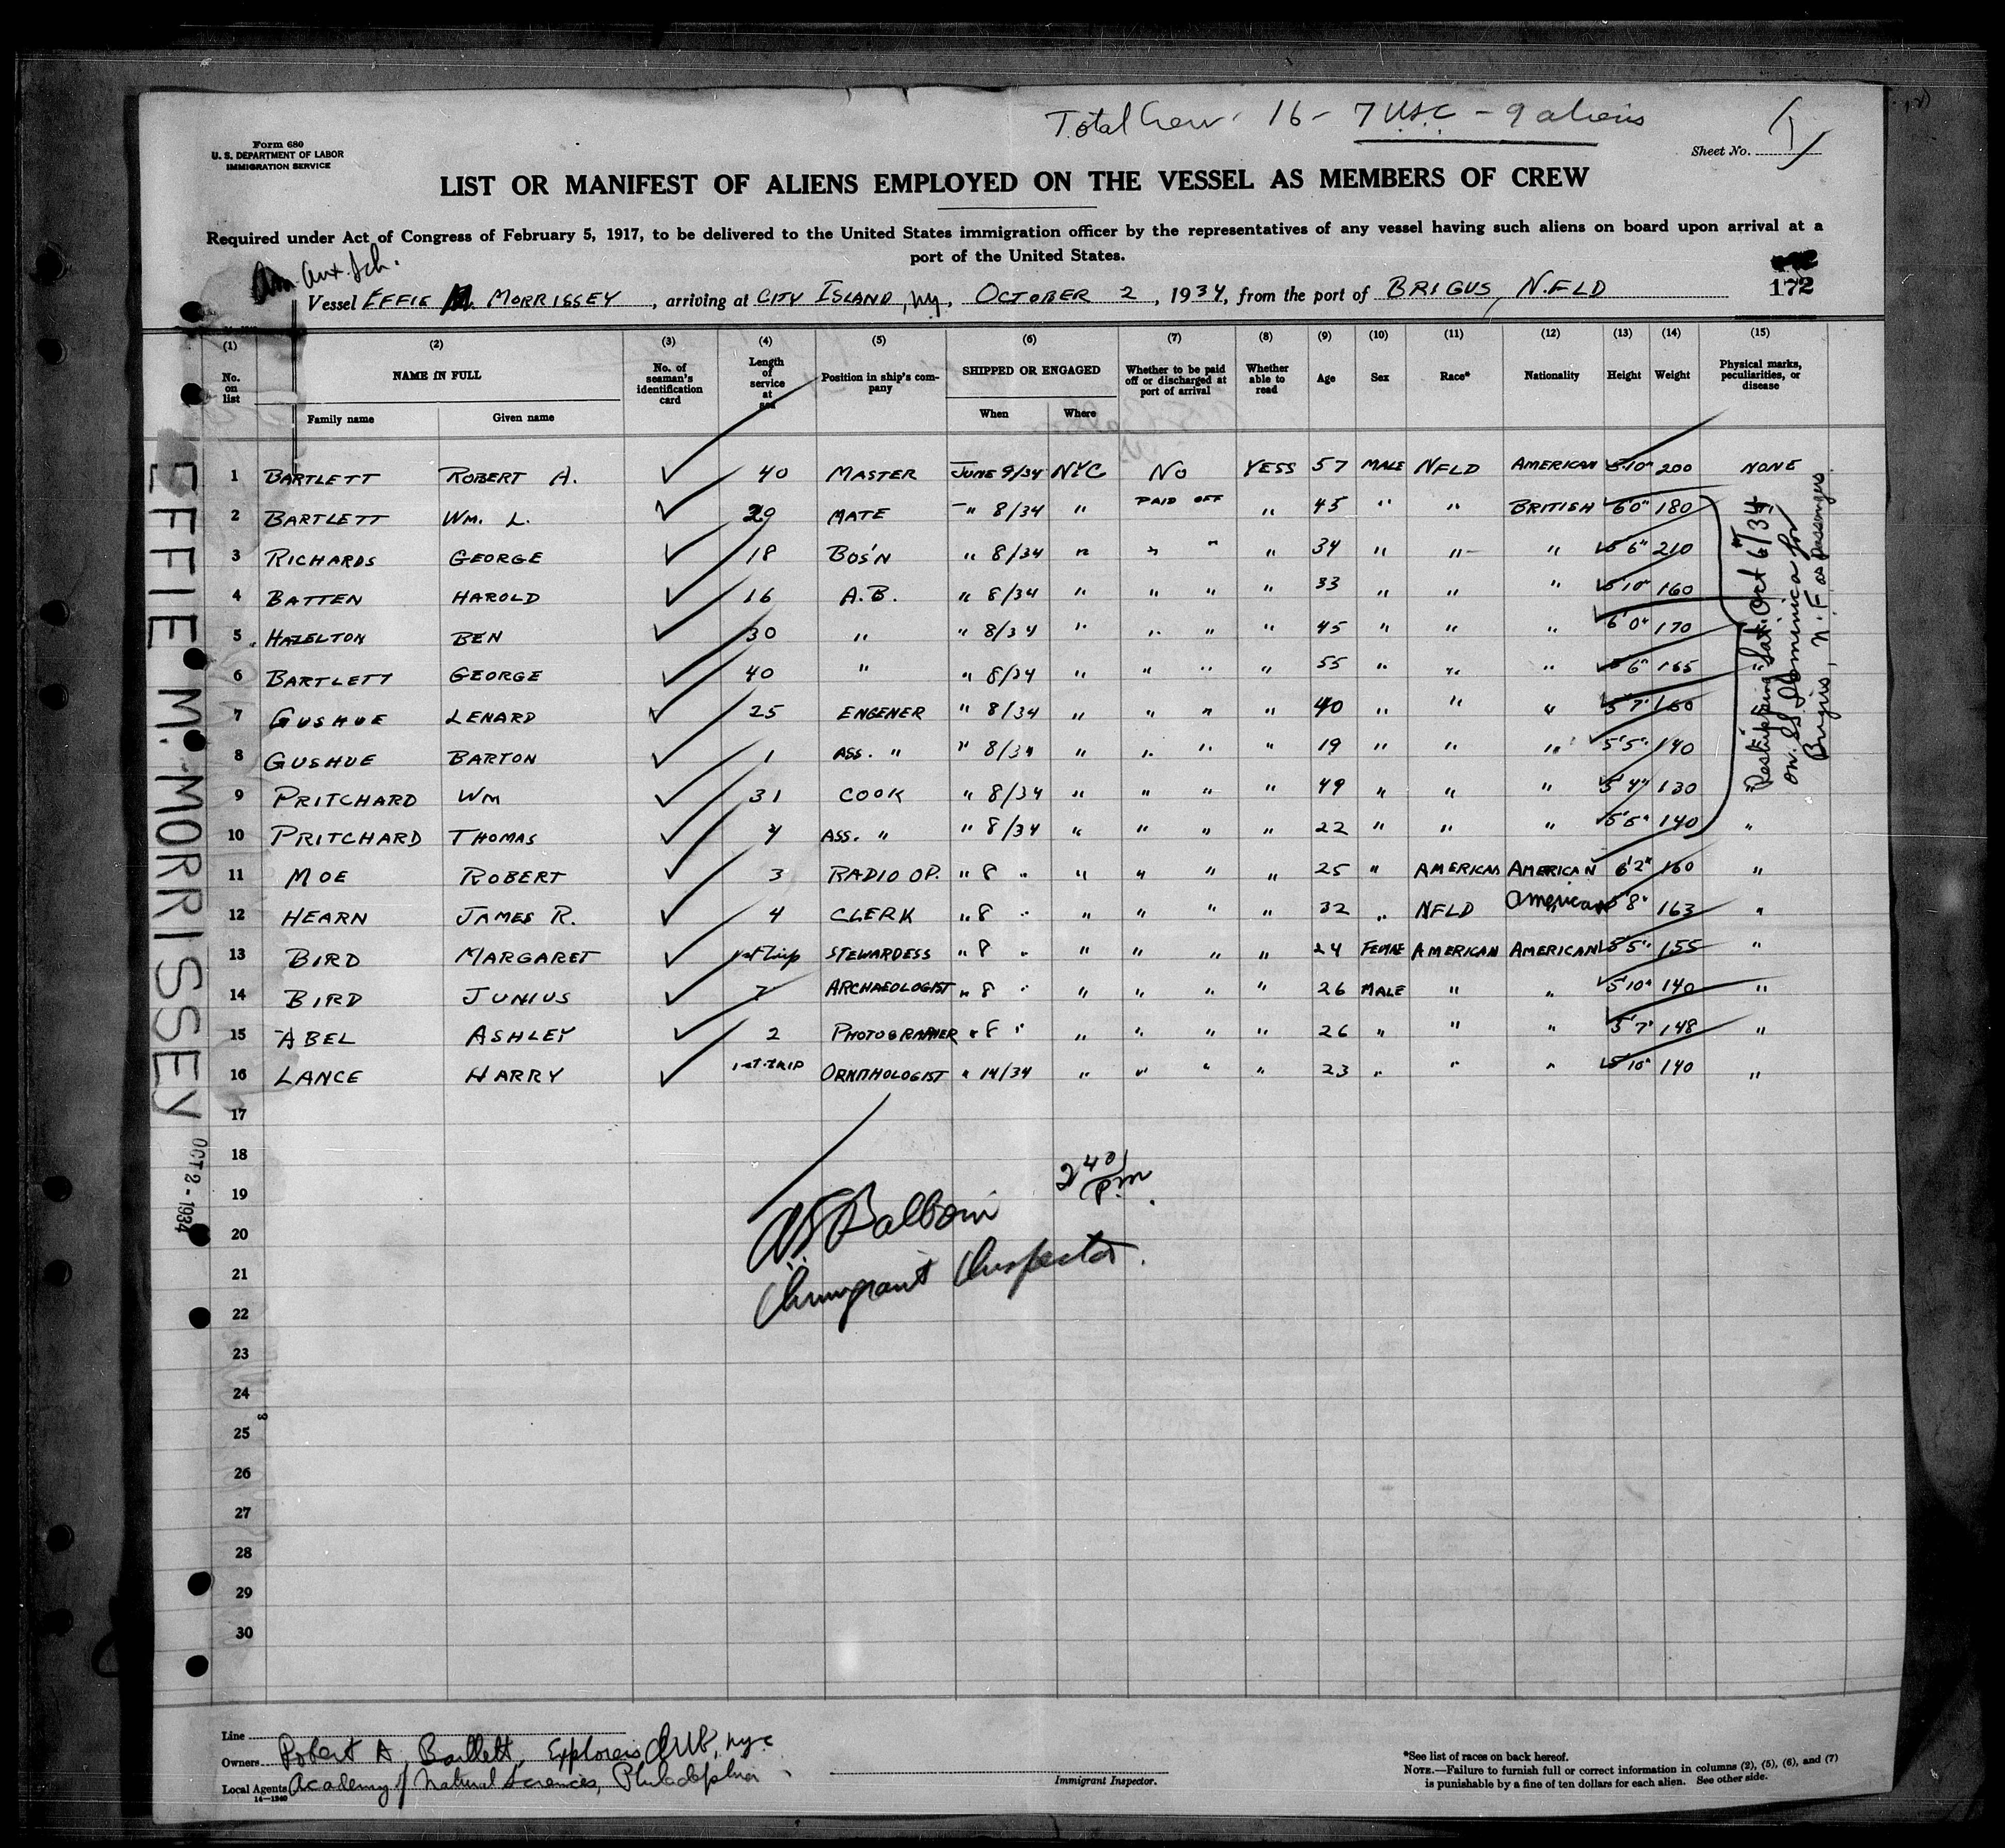 Total Crew. 16 - 7 U.S.C - 9 aliens
Form 680
U. S. DEPARTMENT OF LABOR
IMMIGRATION SERVICE
Sheet No. 1
LIST OR MANIFEST OF ALIENS EMPLOYED ON THE VESSEL AS MEMBERS OF CREW
Required under Act of Congress of February 5, 1917, to be delivered to the United States immigration officer by the representatives of any vessel having such aliens on board upon arrival at a
port of the United States.
Am. Aux. Sch.
Vessel EFFIE M. MORRISSEY, arriving at CITY ISLAND, N.Y., OCTOBER 2, 1934, from the port of BRIGUS, N.FLD
172
(1) (2) (3) (4) (5) (6) (7) (8) (9) (10) (11) (12) (13) (14) (15)
No. on list NAME IN FULL No. of seaman's identification card Length of service at sea Position in ship's company SHIPPED OR ENGAGED Whether to be paid off or discharged at port of arrival Whether able to read Age Sex Race* Nationality Height Weight Physical marks, peculiarities, or disease
Family name Given name When Where
1 BARTLETT ROBERT A. ✓ 40 MASTER JUNE 9/34 NYC NO YESS 57 MALE NFLD AMERICAN 5'10" 200 NONE
2 BARTLETT WM. L. ✓ 29 MATE " 8/34 " PAID OFF " 45 " " BRITISH 6'0" 180 "
3 RICHARDS GEORGE ✓ 18 BOS'N " 8/34 " " " " 34 " " " 5'6" 210
4 BATTEN HAROLD ✓ 16 A.B. " 8/34 " " " " 33 " " " 5'10" 160
5 HAZELTON BEN ✓ 30 " " 8/34 " " " " 45 " " " 6'0" 170
6 BARTLETT GEORGE ✓ 40 " " 8/34 " " " " 55 " " " 5'6" 165 "
7 GUSHUE LENARD ✓ 25 ENGENER " 8/34 " " " " 40 " " " 5'7" 160
8 GUSHUE BARTON ✓ 1 ASS. " " 8/34 " " " " 19 " " " 5'5" 140
9 PRITCHARD WM ✓ 31 COOK " 8/34 " " " " 49 " " " 5'4" 130 "
10 PRITCHARD THOMAS ✓ 4 ASS. " " 8/34 " " " " 22 " " " 5'5" 140 "
11 MOE ROBERT ✓ 3 RADIO OP. " 8 " " " " " 25 " AMERICAN AMERICAN 6'2" 160 "
12 HEARN JAMES R. ✓ 4 CLERK " 8 " " " " " 32 " NFLD American 5'8" 163 "
13 BIRD MARGARET ✓ 1st Trip STEWARDESS " 8 " " " " " 24 FEMALE AMERICAN AMERICAN 5'5" 155 "
14 BIRD JUNIUS ✓ 7 ARCHAEOLOGIST " 8 " " " " " 26 MALE " " 5'10" 140 "
15 ABEL ASHLEY ✓ 2 PHOTOGRAPHER " 8 " " " " " 26 " " " 5'7" 148 "
16 LANCE HARRY ✓ 1ST TRIP ORNITHOLOGIST " 14/34 " " " " 23 " " " 5'10" 140 "
17
18
19
20
21
22
23
24
25
26
27
28
29
30
Reshipping Sat. Oct 6/34
on SS Dominica for
Brigus, N.F as passengers
2 40/PM
Immigrant Inspector.
EFFIE M. MORRISSEY OCT 2 - 1934
3
Line
Owners Robert A. Bartlett, Explorers Club, NYC
Local Agents Academy of Natural Sciences, Philadelphia
14-1240
Immigrant Inspector.
*See list of races on back hereof.
NOTE.—Failure to furnish full or correct information in columns (2), (5), (6), and (7)
is punishable by a fine of ten dollars for each alien. See other side.